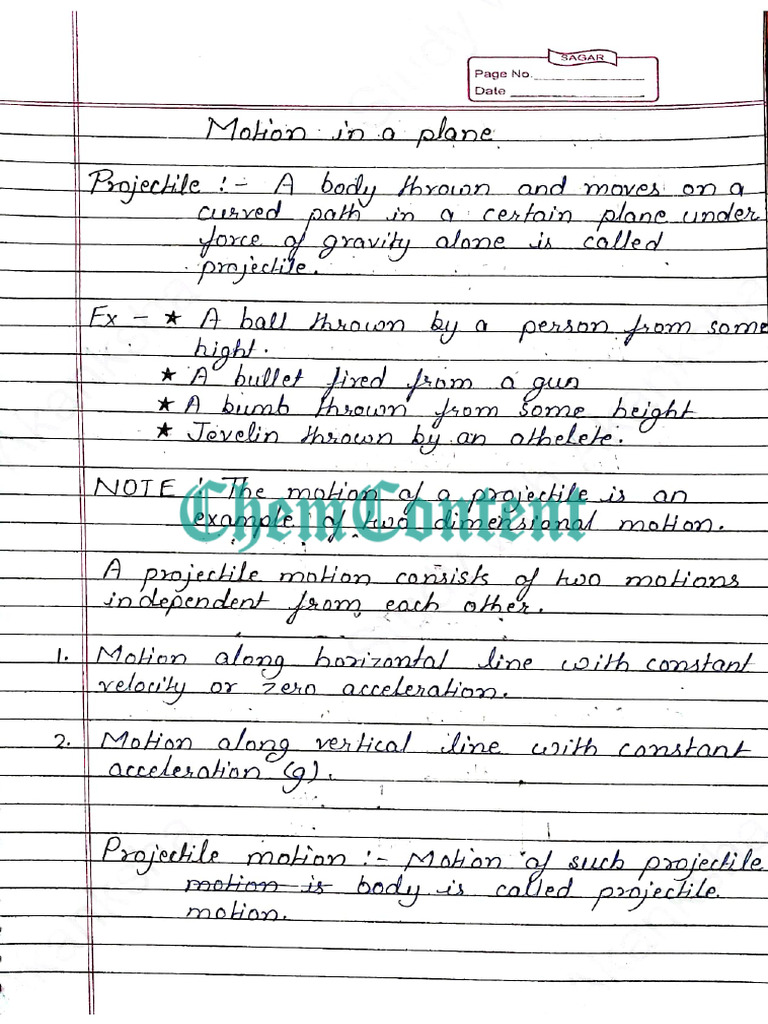 SAGAR
Page No.
Date
Motion in a plane
Projectile :- A body thrown and moves on a
curved path in a certain plane under
force of gravity alone is called
projectile.
Ex - ★ A ball thrown by a person from some
hight.
★ A bullet fired from a gun
★ A bumb thrown from some height
★ Jevelin thrown by an athelete.
NOTE : The motion of a projectile is an
example of two dimensional motion.
ChemContent
A projectile motion consists of two motions
independent from each other.
1. Motion along horizontal line with constant
velocity or zero acceleration.
2. Motion along vertical line with constant
acceleration (g).
Projectile motion :- Motion of such projectile
motion is body is called projectile
motion.